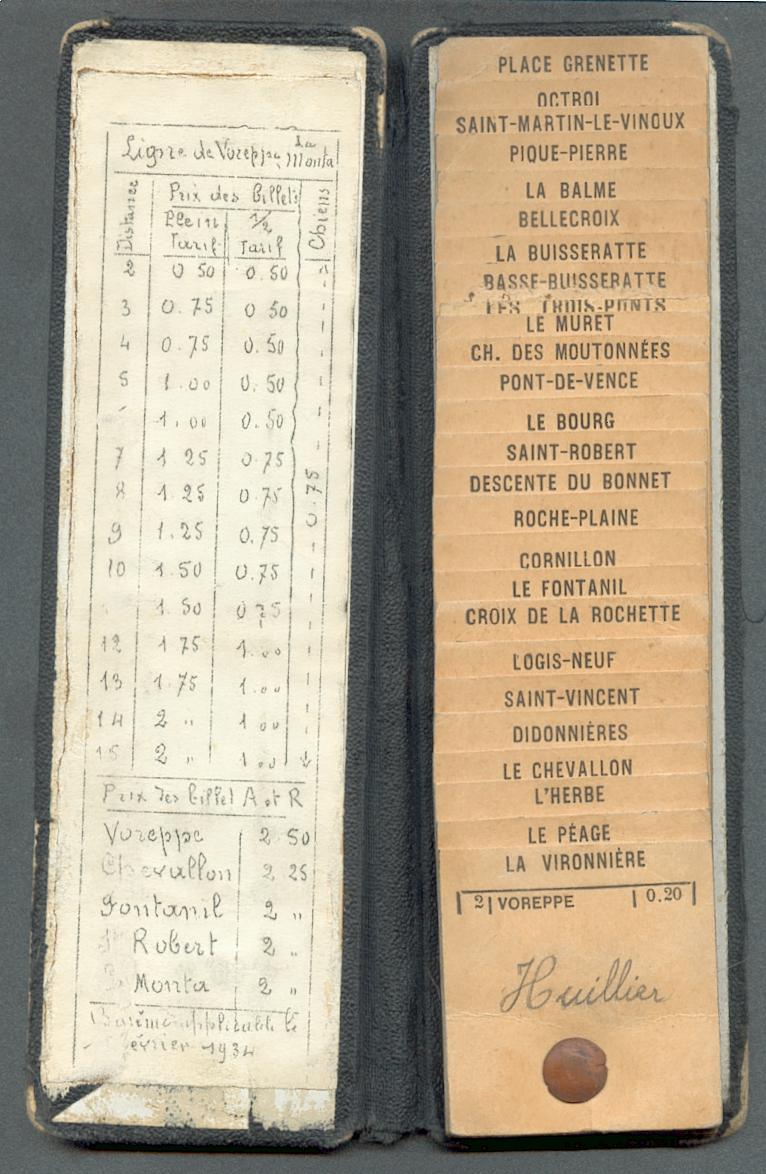 Ligne de Voreppe, La Monta
Distance
Prix des Billets
Chiens
Plein Tarif
1/2 Tarif
2 0 50 0.50
3 0.75 0 50
4 0.75 0.50
5 1.00 0.50
1.00 0.50
7 1 25 0.75
8 1.25 0.75
9 1.25 0.75
10 1.50 0.75
1.50 0.75
12 1 75 1.00
13 1.75 1.00
14 2 " 1.00
15 2 " 1.00
0.75
Prix des billet A et R
Voreppe 2 50
Chevallon 2 25
Fontanil 2 "
St Robert 2 "
Monta 2 "
Barême applicable le
février 1934
PLACE GRENETTE
OCTROI
SAINT-MARTIN-LE-VINOUX
PIQUE-PIERRE
LA BALME
BELLECROIX
LA BUISSERATTE
BASSE-BUISSERATTE
LES TROIS-PONTS
LE MURET
CH. DES MOUTONNÉES
PONT-DE-VENCE
LE BOURG
SAINT-ROBERT
DESCENTE DU BONNET
ROCHE-PLAINE
CORNILLON
LE FONTANIL
CROIX DE LA ROCHETTE
LOGIS-NEUF
SAINT-VINCENT
DIDONNIÈRES
LE CHEVALLON
L'HERBE
LE PÉAGE
LA VIRONNIÈRE
2 VOREPPE 0.20
Huillier